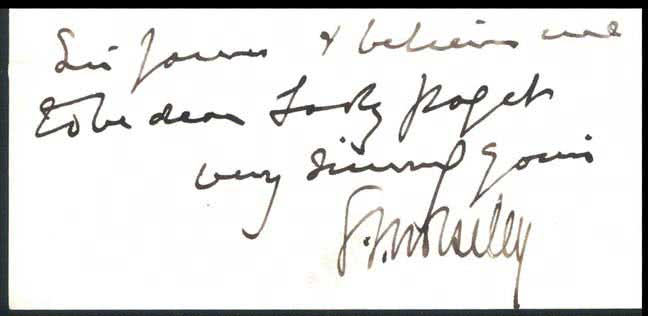 Sir James & believe me
to be dear Lady Paget
very sincerely yours
G.J. Wolseley